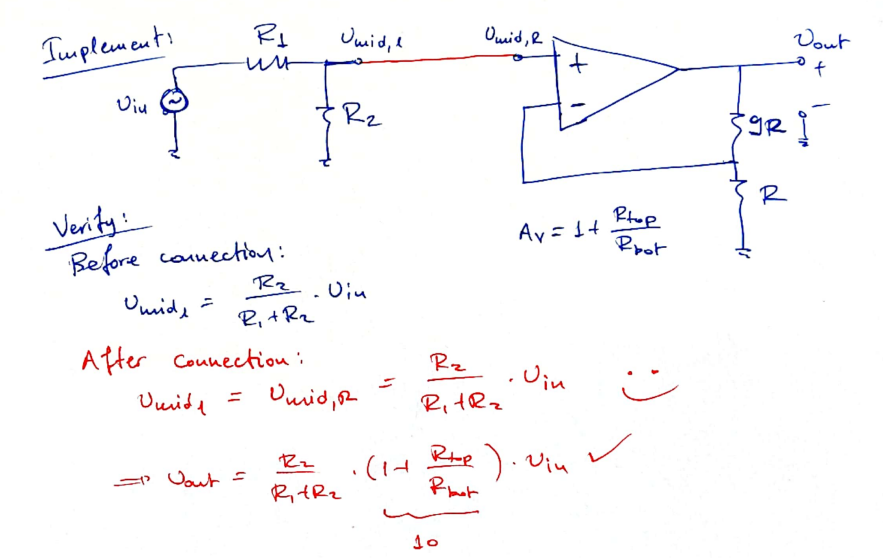 Implement:
R1
Umid,l
Umid,R
Uout
Uin
R2
+
-
+
-
9R
R
Av = 1 + Rtop / Rbot
Verify:
Before connection:
Umid,l = R2 / (R1+R2) · Uin
After connection:
Umid,l = Umid,R = R2 / (R1+R2) · Uin
⇒ Uout = R2 / (R1+R2) · (1 + Rtop / Rbot) · Uin ✓
10